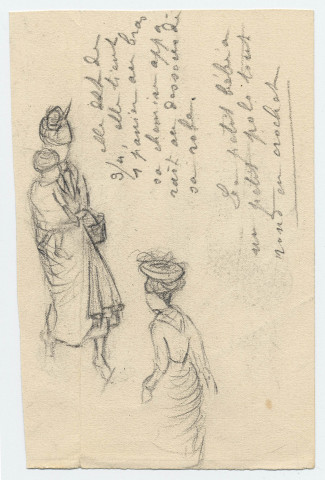 elle est de
3/4, elle tient
1 panier au bras
sa chemise appa
rait au dessous de
sa robe.
Le petit bébé a
un petit poli tout
rond au crochet